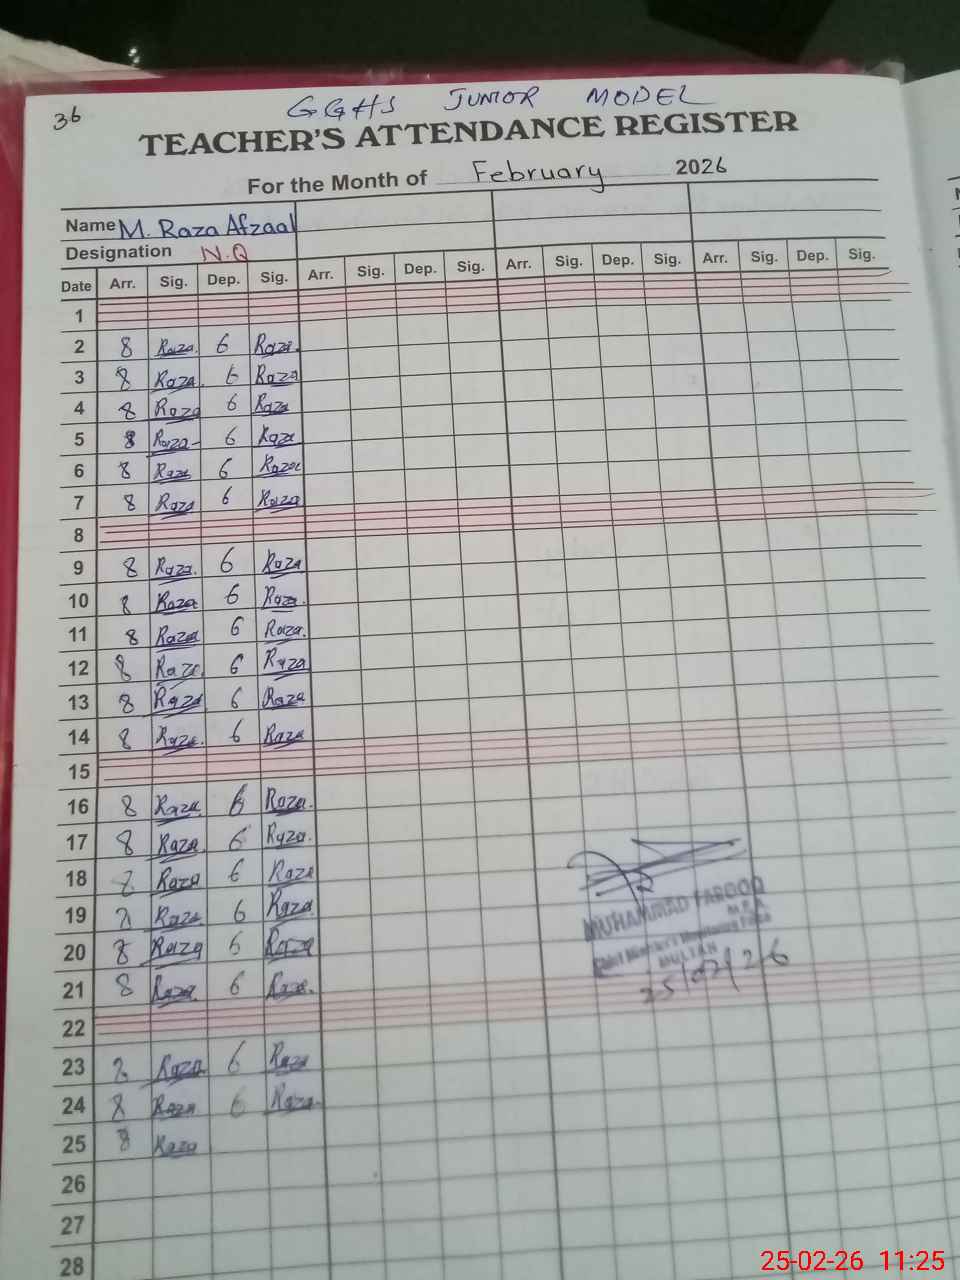 36
GGHS JUNIOR MODEL
TEACHER'S ATTENDANCE REGISTER
For the Month of February 2026
Name M. Raza Afzaal
Designation N.Q
Date Arr. Sig. Dep. Sig. Arr. Sig. Dep. Sig. Arr. Sig. Dep. Sig. Arr. Sig. Dep. Sig.
1
2 8 Raza. 6 Raza.
3 8 Raza. 6 Raza
4 8 Raza 6 Raza
5 8 Raza- 6 Raza
6 8 Raza 6 Raza
7 8 Raza 6 Raza
8
9 8 Raza. 6 Raza
10 8 Raza 6 Raza.
11 8 Raza 6 Raza.
12 8 Raza. 6 Raza
13 8 Raza 6 Raza
14 8 Raza. 6 Raza
15
16 8 Raza. 6 Raza.
17 8 Raza. 6 Raza.
18 8 Raza 6 Raza
19 8 Raza. 6 Raza
20 8 Raza 6 Raza
21 8 Raza. 6 Raza.
22
23 8 Raza 6 Raza
24 8 Raza 6 Raza
25 8 Raza
26
27
28
MUHAMMAD FAROOQ
M.E.A
Chief Minister's Monitoring Force
MULTAN
25/02/26
25-02-26 11:25